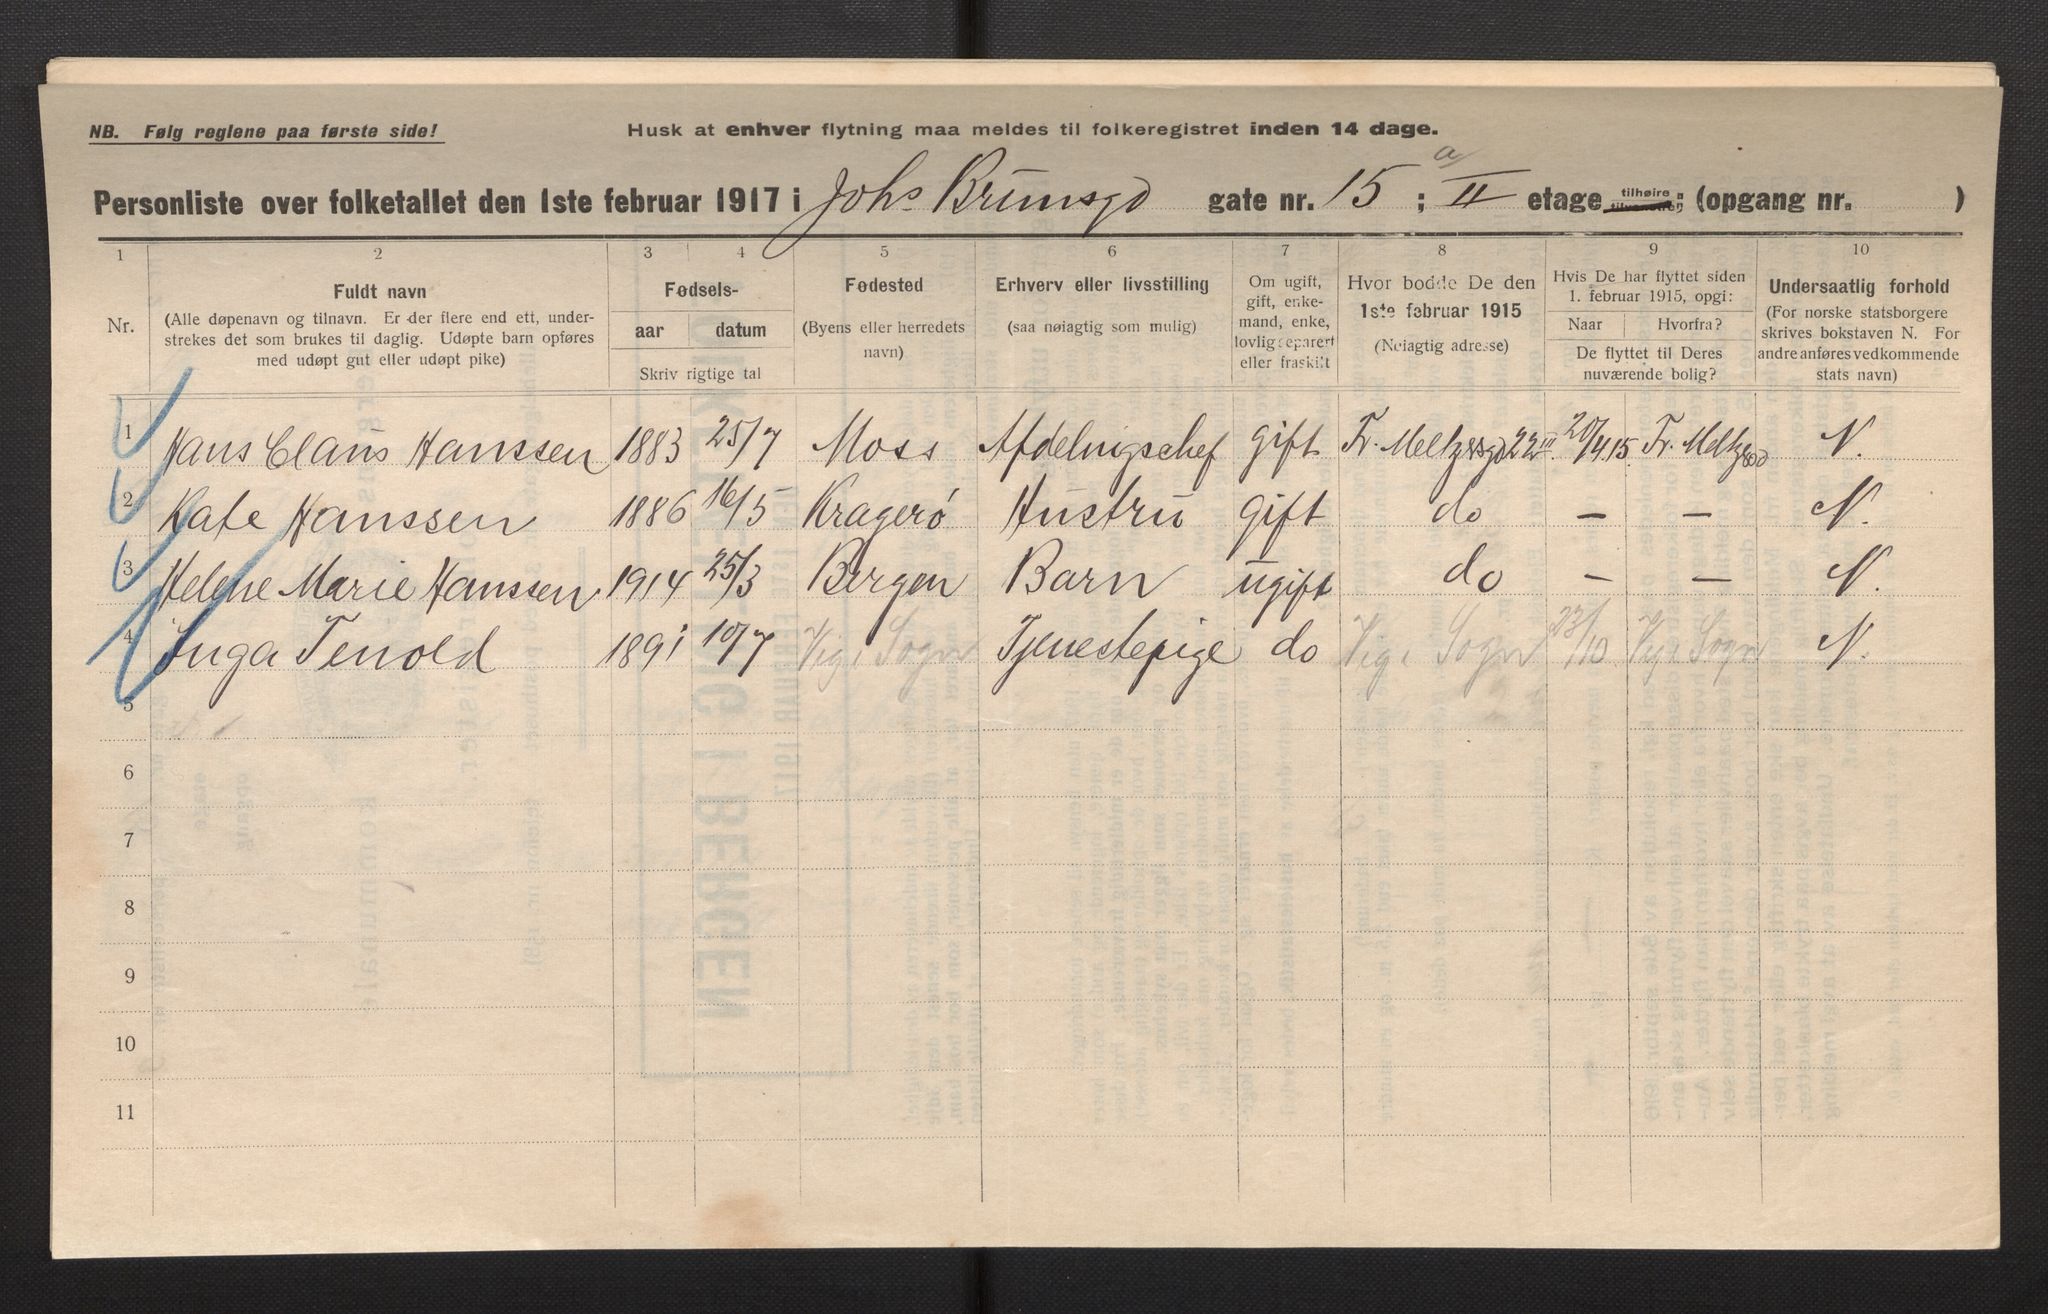 NB. Følg reglene paa første side!
Husk at enhver flytning maa meldes til folkeregistret inden 14 dage.
Personliste over folketallet den 1ste februar 1917 i Johs Brunsgd gate nr. 15 a ; II etage tilhøire tilvenstre: (opgang nr. )
1 2 3 4 5 6 7 8 9 10
Nr.
Fuldt navn
(Alle døpenavn og tilnavn. Er der flere end ett, under-
strekes det som brukes til daglig. Udøpte barn opføres
med udøpt gut eller udøpt pike)
Fødsels-
aar datum
Skriv rigtige tal
Fødested
(Byens eller herredets
navn)
Erhverv eller livsstilling
(saa nøiagtig som mulig)
Om ugift,
gift, enke-
mand, enke,
lovlig separert
eller fraskilt
Hvor bodde De den
1ste februar 1915
(Nøiagtig adresse)
Hvis De har flyttet siden
1. februar 1915, opgi:
Naar Hvorfra?
De flyttet til Deres
nuværende bolig?
Undersaatlig forhold
(For norske statsborgere
skrives bokstaven N. For
andre anføres vedkommende
stats navn)
1 Hans Claus Hanssen 1883 25/7 Moss Afdelingschef gift Fr. Meltzersgd 22 III. 20/4 15. Fr. Meltzersgd N.
2 Kate Hanssen 1886 16/5 Kragerø Hustru gift do — — N.
3 Helene Marie Hanssen 1914 25/3 Bergen Barn ugift do — — N.
4 Inga Tenold 1891 10/7 Vig i Sogn Tjenestepige do Vig i Sogn 23/10 Vig i Sogn N.
5
6
7
8
9
10
11